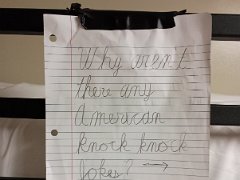 Why aren't
there any
American
knock knock
Jokes? →